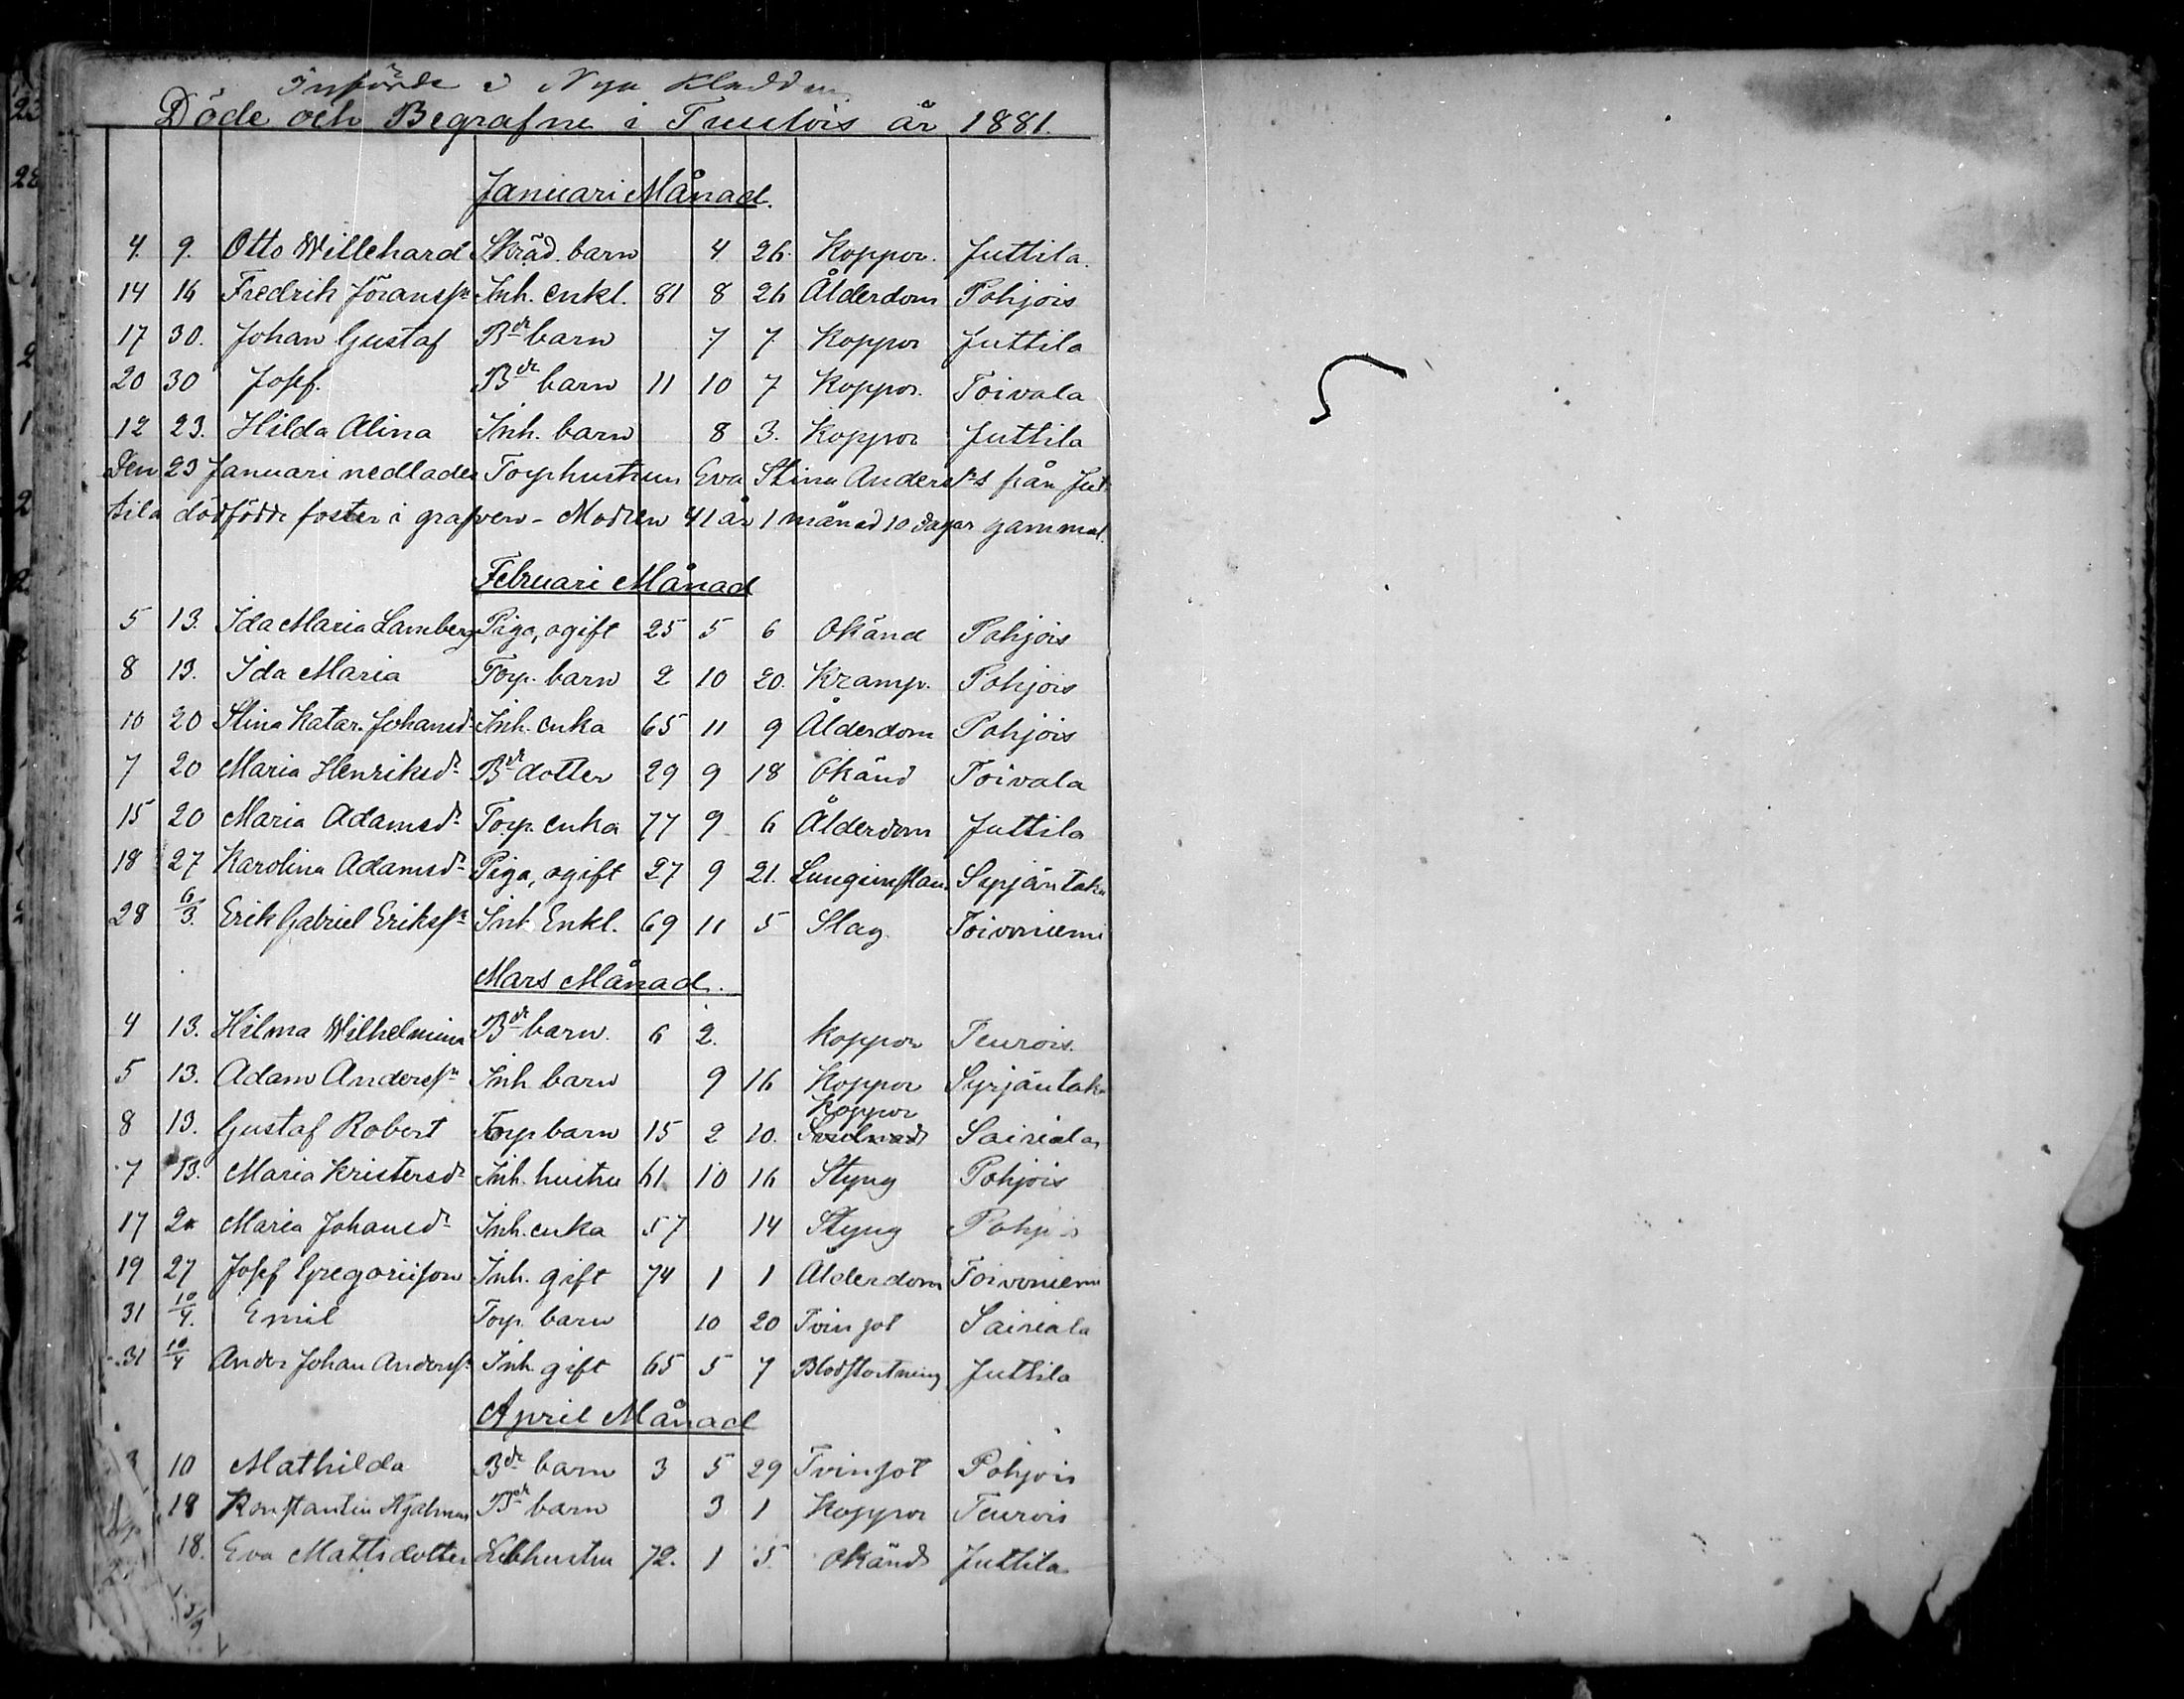 Införde i Nya Kladden
Döde och Begrafne i Tuulois år 1881.
Januari Månad.
4. 9. Otto Willehard Skräd. barn 4 26 Koppor. Juttila.
14 16 Fredrik Göransſn Inh. Enkl. 81 8 26 Ålderdom Pohjois
17 30. Johan Gustaf Bde barn 7 7 Koppor Juttila
20 30 Josef. Bde barn 11 10 7 Koppor. Toivala
12 23. Hilda Alina Inh. barn 8 3. Koppor Juttila
Den 23 Januari nedlades Torphustrun Eva Stina Andersſns från Jut-
tila dödfödde foster i grafven - Modren 41 år 1 månad 10 dagar gammal.
Februari Månad
5 13. Ida Maria Lamberg Piga, ogift 25 5 6 Okänd Pohjois
8 13. Ida Maria Torp. barn 2 10 20. Kramp. Pohjois
10 20 Stina Katar. Johansdr Inh. enka 65 11 9 Ålderdom Pohjois
7 20 Maria Henriksdr Bde dotter 29 9 18 Okänd Toivala
15 20 Maria Adamsdr Torp. enka 77 9 6 Ålderdom Juttila
18 27 Karolina Adamsdr Piga, ogift 27 9 21. Lunginflam. Syrjäntaka
28 6/3. Erik Gabriel Eriksſn Inh Enkl. 69 11 5 Slag Toivoniemi
Mars Månad.
4 13. Hilma Wilhelmina Bde barn. 6 2. Koppor Teurois.
5 13. Adam Andersſn Inh barn 9 16 Koppor Syrjäntaka
Koppor
8 13. Gustaf Robert Torp barn 15 2 10. Sairiala
7 13. Maria Kristersdr Inh. hustru 61 10 16 Styng Pohjois
17 Maria Johansdr Inh. enka 57 14 Styng Pohjois
19 27 Josef Gregoriison Inh. gift 74 1 1 Ålderdom Toivoniemi
31 10/4. Emil Torp. barn 10 20 Tvinsot Sairiala
31 10/4 Anders Johan Andersſn Inh. gift 65 5 7 Blodstörtning Juttila
April Månad
3 10 Mathilda Bde barn 3 5 29 Tvinsot Pohjois
18 Konstantin Hjalmar Bde barn 3 1 Koppor Teurois
18. Eva Mattsdotter hustru 72. 1 5. Okänd Juttila